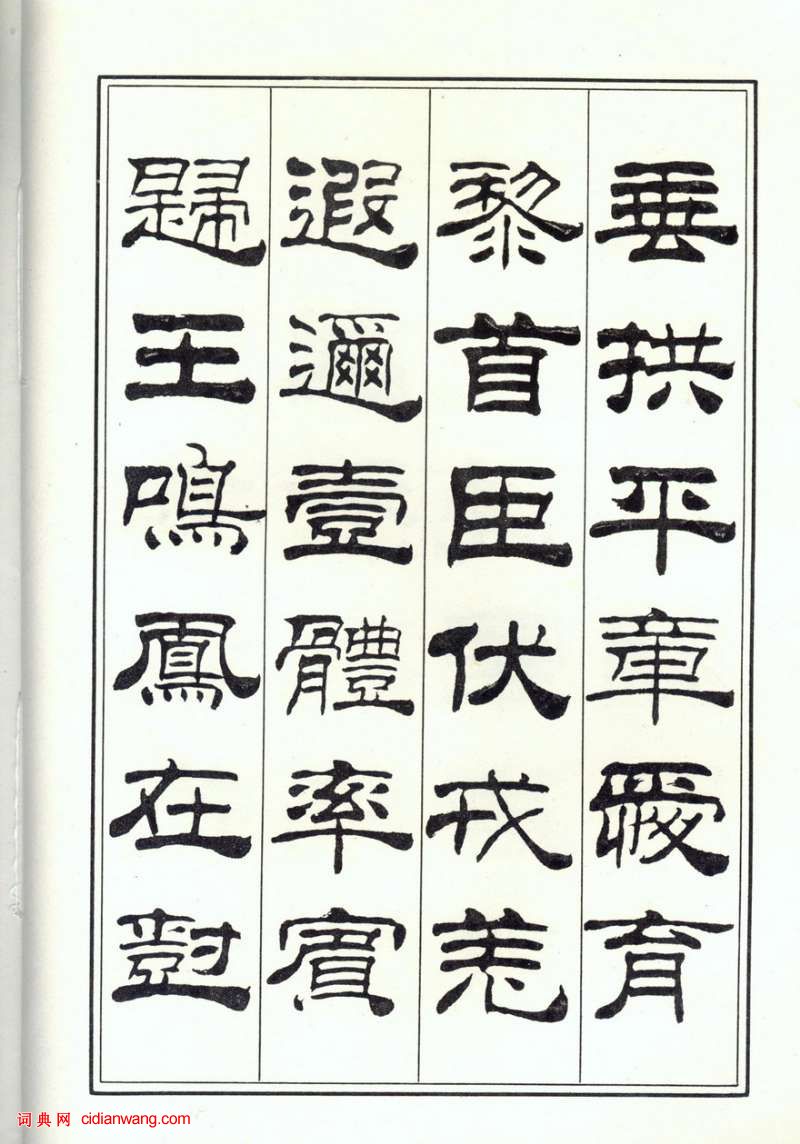 垂拱平章愛育
黎首臣伏戎羌
遐邇壹體率賓
歸王鳴鳳在樹
词典网 cidianwang.com